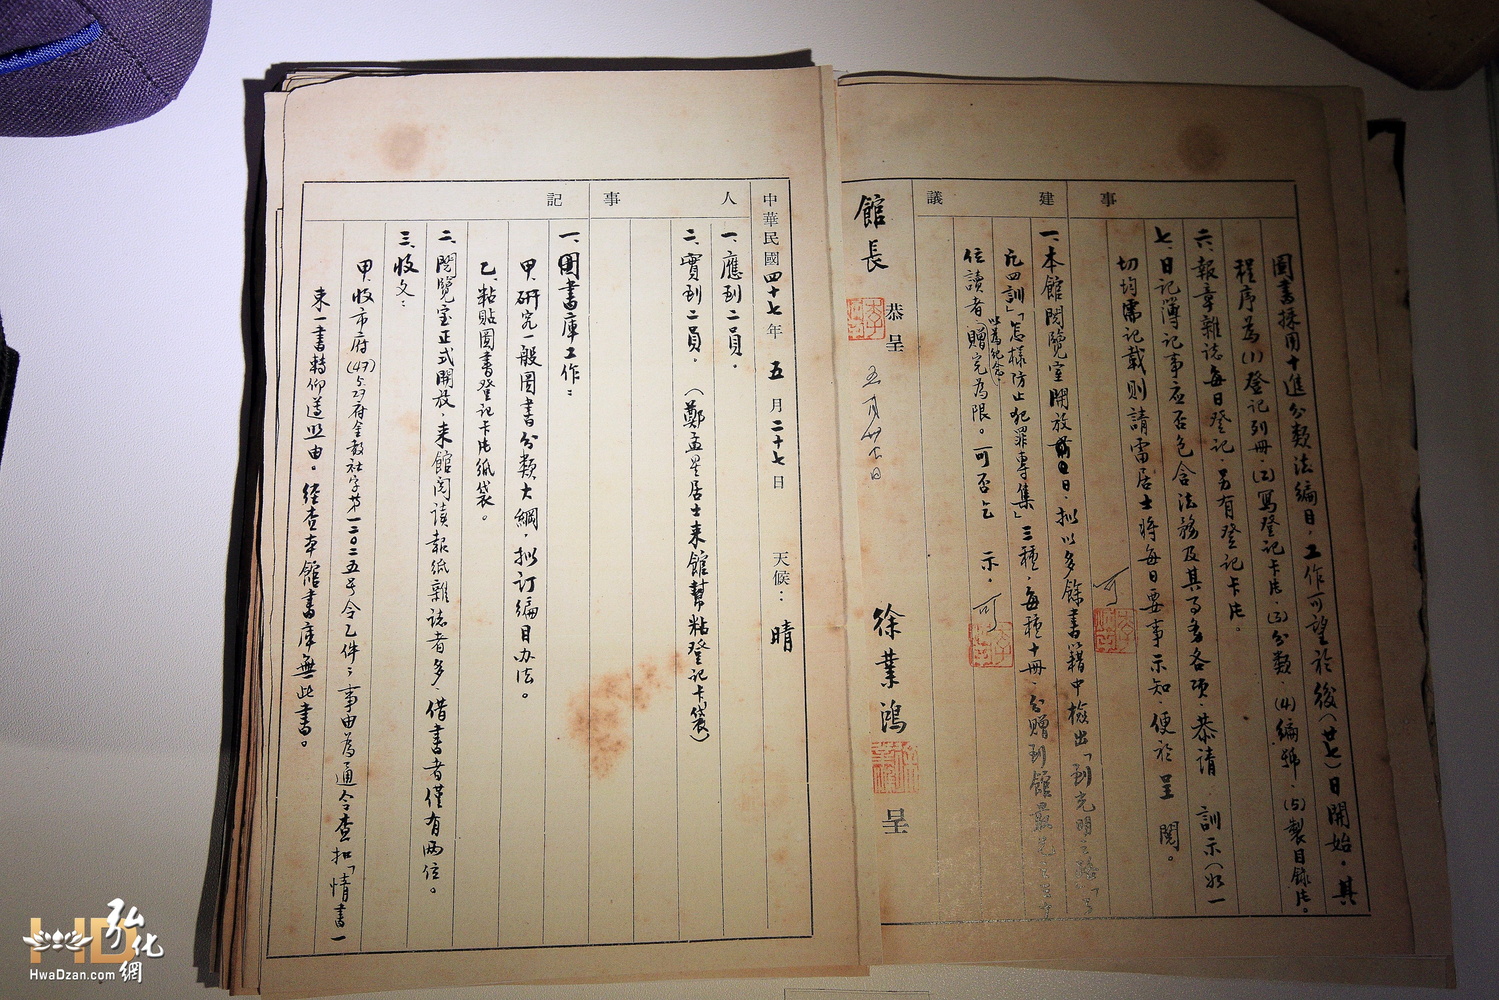 事
圖書採用十進分類法編目，工作可望於後（廿七）日開始。其
程序為(1)登記列冊.(2)寫登記卡片.(3)分類.(4)編號.(5)製目錄片。
六、報章雜誌每日登記.另有登記卡片。
七、日記簿記事應否包含法務及其事務各項.恭請 訓示（如一
切均需記載則請雷居士將每日要事示知.便於呈閱。
可
建議
一、本館閱覽室開放前日.擬以多餘書籍中檢出「到光明之路」「
四訓」「怎樣防止犯罪專集」三種.每種十冊.分贈到館最先之
位讀者（以為紀念）贈完為限。可否乞 示.
可
館長 恭呈 五月廿七日
徐業鴻 呈
中華民國四十七年 五月二十七日 天候：晴
人事
一、應到二員.
二、實到二員.（鄭孟星居士來館幫粘登記卡袋）
記
一、圖書庫工作：
甲、研究一般圖書分類大綱.擬訂編目办法。
乙、粘貼圖書登記卡片紙袋。
二、閱覽室正式開放.來館閱讀報紙雜誌者多.借書者僅有兩位。
三、收文：
甲、收市府(47)5.27府金教社字第一二〇二五号令乙件：事由為通令查扣「情書一
束一書轉仰遵照由。經查本館書庫無此書。
HD弘化網
HwaDzan.com